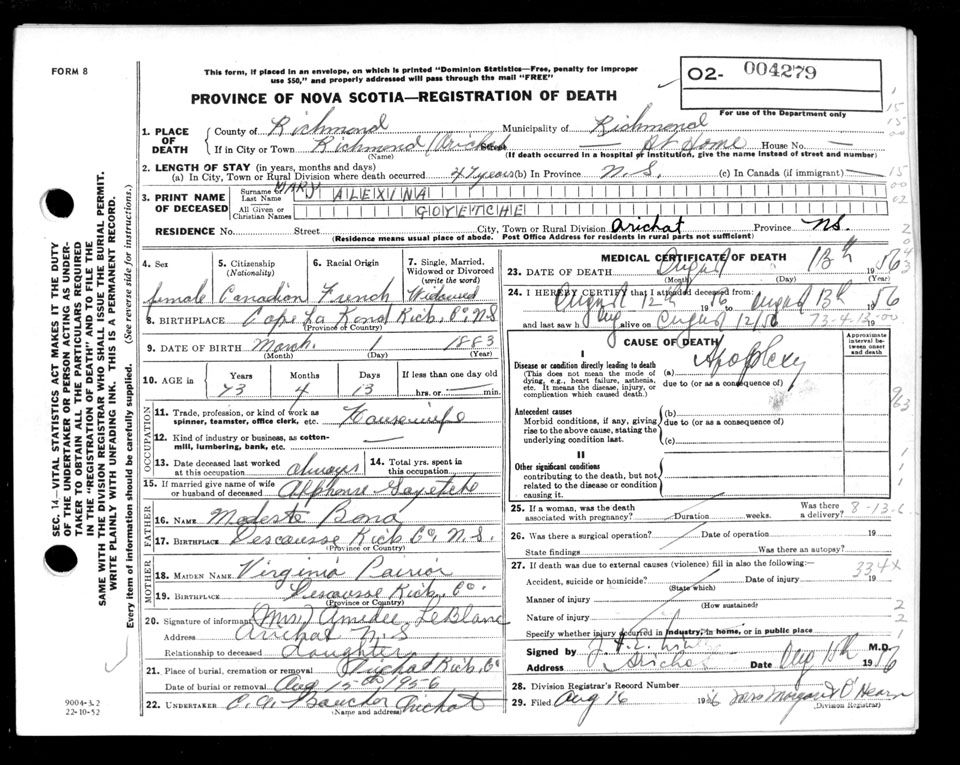 FORM 8
This form, if placed in an envelope, on which is printed "Dominion Statistics—Free, penalty for improper
use $50," and properly addressed will pass through the mail "FREE"
O2- 004279
For use of the Department only
PROVINCE OF NOVA SCOTIA—REGISTRATION OF DEATH
1. PLACE OF DEATH
County of Richmond Municipality of Richmond
If in City or Town Richmond / Arichat Street — At Home House No. —
(Name) (If death occurred in a hospital or institution, give the name instead of street and number)
2. LENGTH OF STAY (in years, months and days)
(a) In City, Town or Rural Division where death occurred 47 years (b) In Province N.S. (c) In Canada (if immigrant) —
3. PRINT NAME OF DECEASED
Surname or Last Name MARY ALEXINA
All Given or Christian Names GOYETCHE
RESIDENCE No. Street City, Town or Rural Division Arichat Province N.S.
(Residence means usual place of abode. Post Office Address for residents in rural parts not sufficient)
4. Sex female
5. Citizenship (Nationality) Canadian
6. Racial Origin French
7. Single, Married, Widowed or Divorced (write the word) Widowed
8. BIRTHPLACE Cape La Rond Rich. Co. N.S
(Province or Country)
9. DATE OF BIRTH March 1 1883
(Month) (Day) (Year)
10. AGE in Years Months Days If less than one day old
73 4 13 hrs. or — min.
OCCUPATION
11. Trade, profession, or kind of work as spinner, teamster, office clerk, etc. Housewife
12. Kind of industry or business, as cotton-mill, lumbering, bank, etc. —
13. Date deceased last worked at this occupation always
14. Total yrs. spent in this occupation
15. If married give name of wife or husband of deceased Alphonse Goyetche
FATHER
16. NAME Modeste Bona
17. BIRTHPLACE Descousse Rich. Co. N.S.
(Province or Country)
MOTHER
18. MAIDEN NAME Virginia Pairior
19. BIRTHPLACE Descousse Rich. Co.
(Province or Country)
20. Signature of informant (Mrs) Amedee LeBlanc
Address Arichat N.S
Relationship to deceased daughter
21. Place of burial, cremation or removal Arichat Rich. Co
Date of burial or removal Aug 15th 1956
22. UNDERTAKER Boucher Arichat
(Name and address)
MEDICAL CERTIFICATE OF DEATH
23. DATE OF DEATH August 13th 1956
(Month) (Day) (Year)
24. I HEREBY CERTIFY that I attended deceased from:
August 12th 1956 to August 13th 1956
and last saw h alive on August 12/56 19
73-4-12-00
CAUSE OF DEATH
Approximate interval between onset and death
I
Disease or condition directly leading to death
(This does not mean the mode of dying, e.g., heart failure, asthenia, etc. It means the disease, injury, or complication which caused death.)
(a) Apoplexy
due to (or as a consequence of)
Antecedent causes
Morbid conditions, if any, giving rise to the above cause, stating the underlying condition last.
(b)
due to (or as a consequence of)
(c)
II
Other significant conditions
contributing to the death, but not related to the disease or condition causing it.
25. If a woman, was the death associated with pregnancy? Duration weeks. Was there a delivery? 8-13-6
26. Was there a surgical operation? Date of operation 19
State findings Was there an autopsy?
27. If death was due to external causes (violence) fill in also the following:—
334x
Accident, suicide or homicide? Date of injury 19
(State which)
Manner of injury
(How sustained)
Nature of injury
Specify whether injury occurred in industry, in home, or in public place
Signed by M.D.
Address Arichat Date Aug 1956
28. Division Registrar's Record Number
29. Filed Aug 16 1956 Mrs Margaret O'Hearn
(Division Registrar)
SEC. 14—VITAL STATISTICS ACT MAKES IT THE DUTY
OF THE UNDERTAKER OR PERSON ACTING AS UNDER-
TAKER TO OBTAIN ALL THE PARTICULARS REQUIRED
IN THE "REGISTRATION OF DEATH" AND TO FILE THE
SAME WITH THE DIVISION REGISTRAR WHO SHALL ISSUE THE BURIAL PERMIT.
WRITE PLAINLY WITH UNFADING INK. THIS IS A PERMANENT RECORD.
Every item of information should be carefully supplied. (See reverse side for instructions.)
9004-3.2
22-10-52